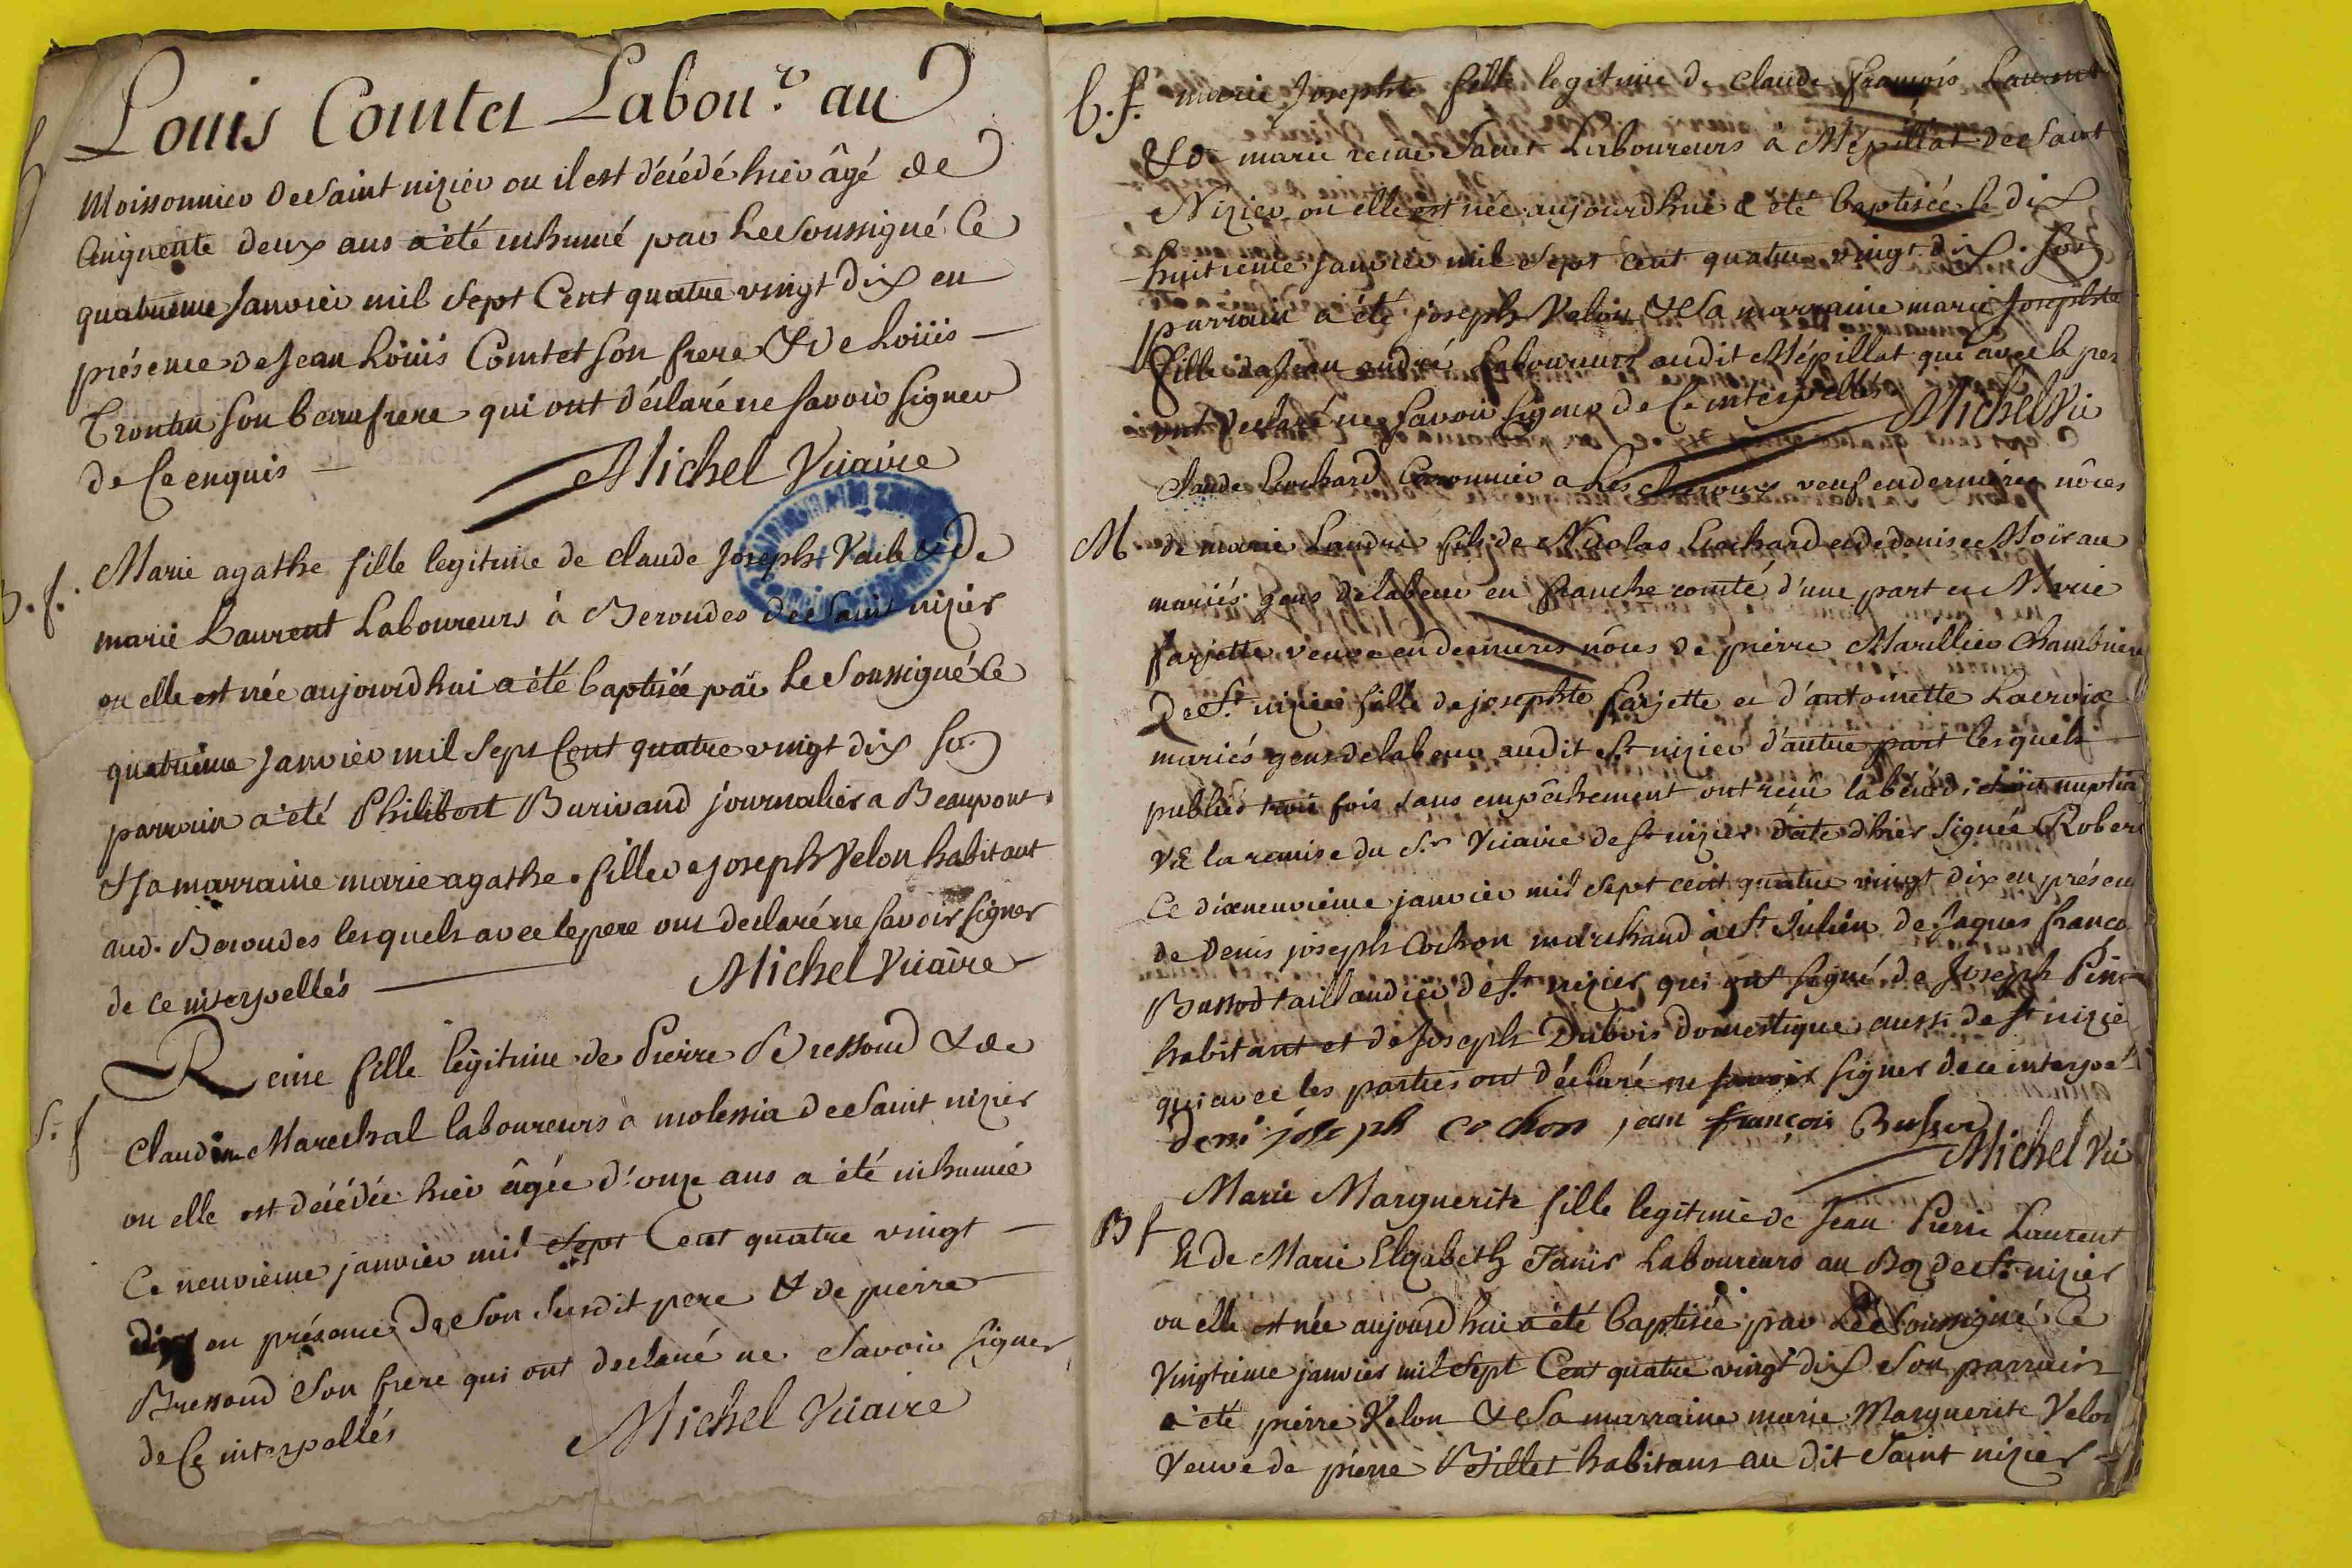 Louis Comtet Labou.r au
Moissonnier de Saint nizier ou il est décédé hier âgé de
Cinquente deux ans a été inhumé par Le Soussigné Ce
quatrieme Janvier mil Sept Cent quatre vingt dix en
présence de Jean Loüis Comtet son frere & de Loüis
Trontin son beaufrere qui ont déclaré ne savoir signer
de Ce enquis
Michel Vicaire
B. f. Marie agathe fille legitime de claude Joseph Vaile & de
marie Laurent Laboureurs à Beroudes de Saint nizier
ou elle est née aujourdhui a été baptisée par Le Soussigné Ce
quatrieme Janvier mil Sept Cent quatre vingt dix so.
parrain a été Philibert Burivand journalier a Beaupont
& sa marraine marie agathe fille de joseph Velon habitant
aud. Beroudes lesquels avec le pere ont declaré ne savoir signer
de ce interpellés
Michel Vicaire
S. f Reine fille légitime de Pierre Bressoud & de
Claudine Marechal laboureurs à molessia de Saint nizier
ou elle est décédée hier âgée d'onze ans a été inhumée
Ce neuvieme janvier mil Sept Cent quatre vingt
dix en présence de Son Susdit pere & de pierre
Bressoud Son frere qui ont declaré ne Savoir signer
de Ce interpellés
Michel Vicaire
b. f. marie Josephte fille legitime de claude françois Laurent
& de marie reine Janet Laboureurs à Mépillat de Saint
Nizier ou elle est née aujourdhui a été baptisée le dix
huitieme janvier mil Sept Cent quatre vingt dix. son
parrain a été joseph Velon & Sa marraine marie Josephte
fille de Jean andré Laboureurs audit Mépillat qui avec le per
ont declaré ne Savoir signer de Ce interpellés
Michel Vic
Claude Lochard Cossonnier a Les veuf en dernieres nôces
M de marie Landri fils de Nicolas Lochard et de denise Moireau
mariés gens de labeur en franche comté d'une part et Marie
farjette veuve en dernieres nôces de pierre Marillier Chambrier
De St nizier fille de josephte farjette et d'antoinette Lacroix
mariés gens de labeur audit St nizier d'autre part lesquels
publiés trois fois sans empêchement ont recû la bénédiction nuptia
vû la remise du Sr Vicaire de St nizier datte d'hier signée Rober
Ce dixneuvieme janvier mil Sept cent quatre vingt dix en présen
de Denis joseph Cochon marchand à St Julien de Jaques franco
Bussod taillandier de St nizier qui ont signé de Joseph Pin
habitant et de Joseph Dubois domestique aussi de St nizie
qui avec les parties ont déclaré ne savoir signer de ce interpé
deni joseph cochon jean françois Bussod
Michel Vic
B f Marie Marguerite fille legitime de Jean Pierre Laurent
Et de Marie Elizabeth Janir Laboureurs au Boz de St nizier
ou elle est née aujourdhui a été baptisée par Le Soussigné Ce
vingtieme janvier mil Sept Cent quatre vingt dix Son parrain
a été pierre Velon & Sa marraine marie Marguerite Velon
Veuve de pierre Billet habitans au dit Saint nizier